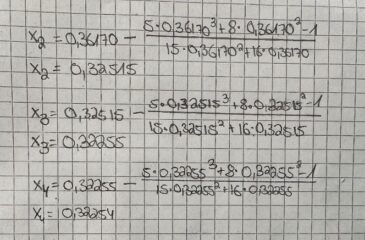 x₂ = 0,36170 − (5·0,36170³ + 8·0,36170² − 1) / (15·0,36170² + 16·0,36170)
x₂ = 0,32515
x₃ = 0,32515 − (5·0,32515³ + 8·0,32515² − 1) / (15·0,32515² + 16·0,32515)
x₃ = 0,32255
x₄ = 0,32255 − (5·0,32255³ + 8·0,32255² − 1) / (15·0,32255² + 16·0,32255)
x₄ = 0,32254